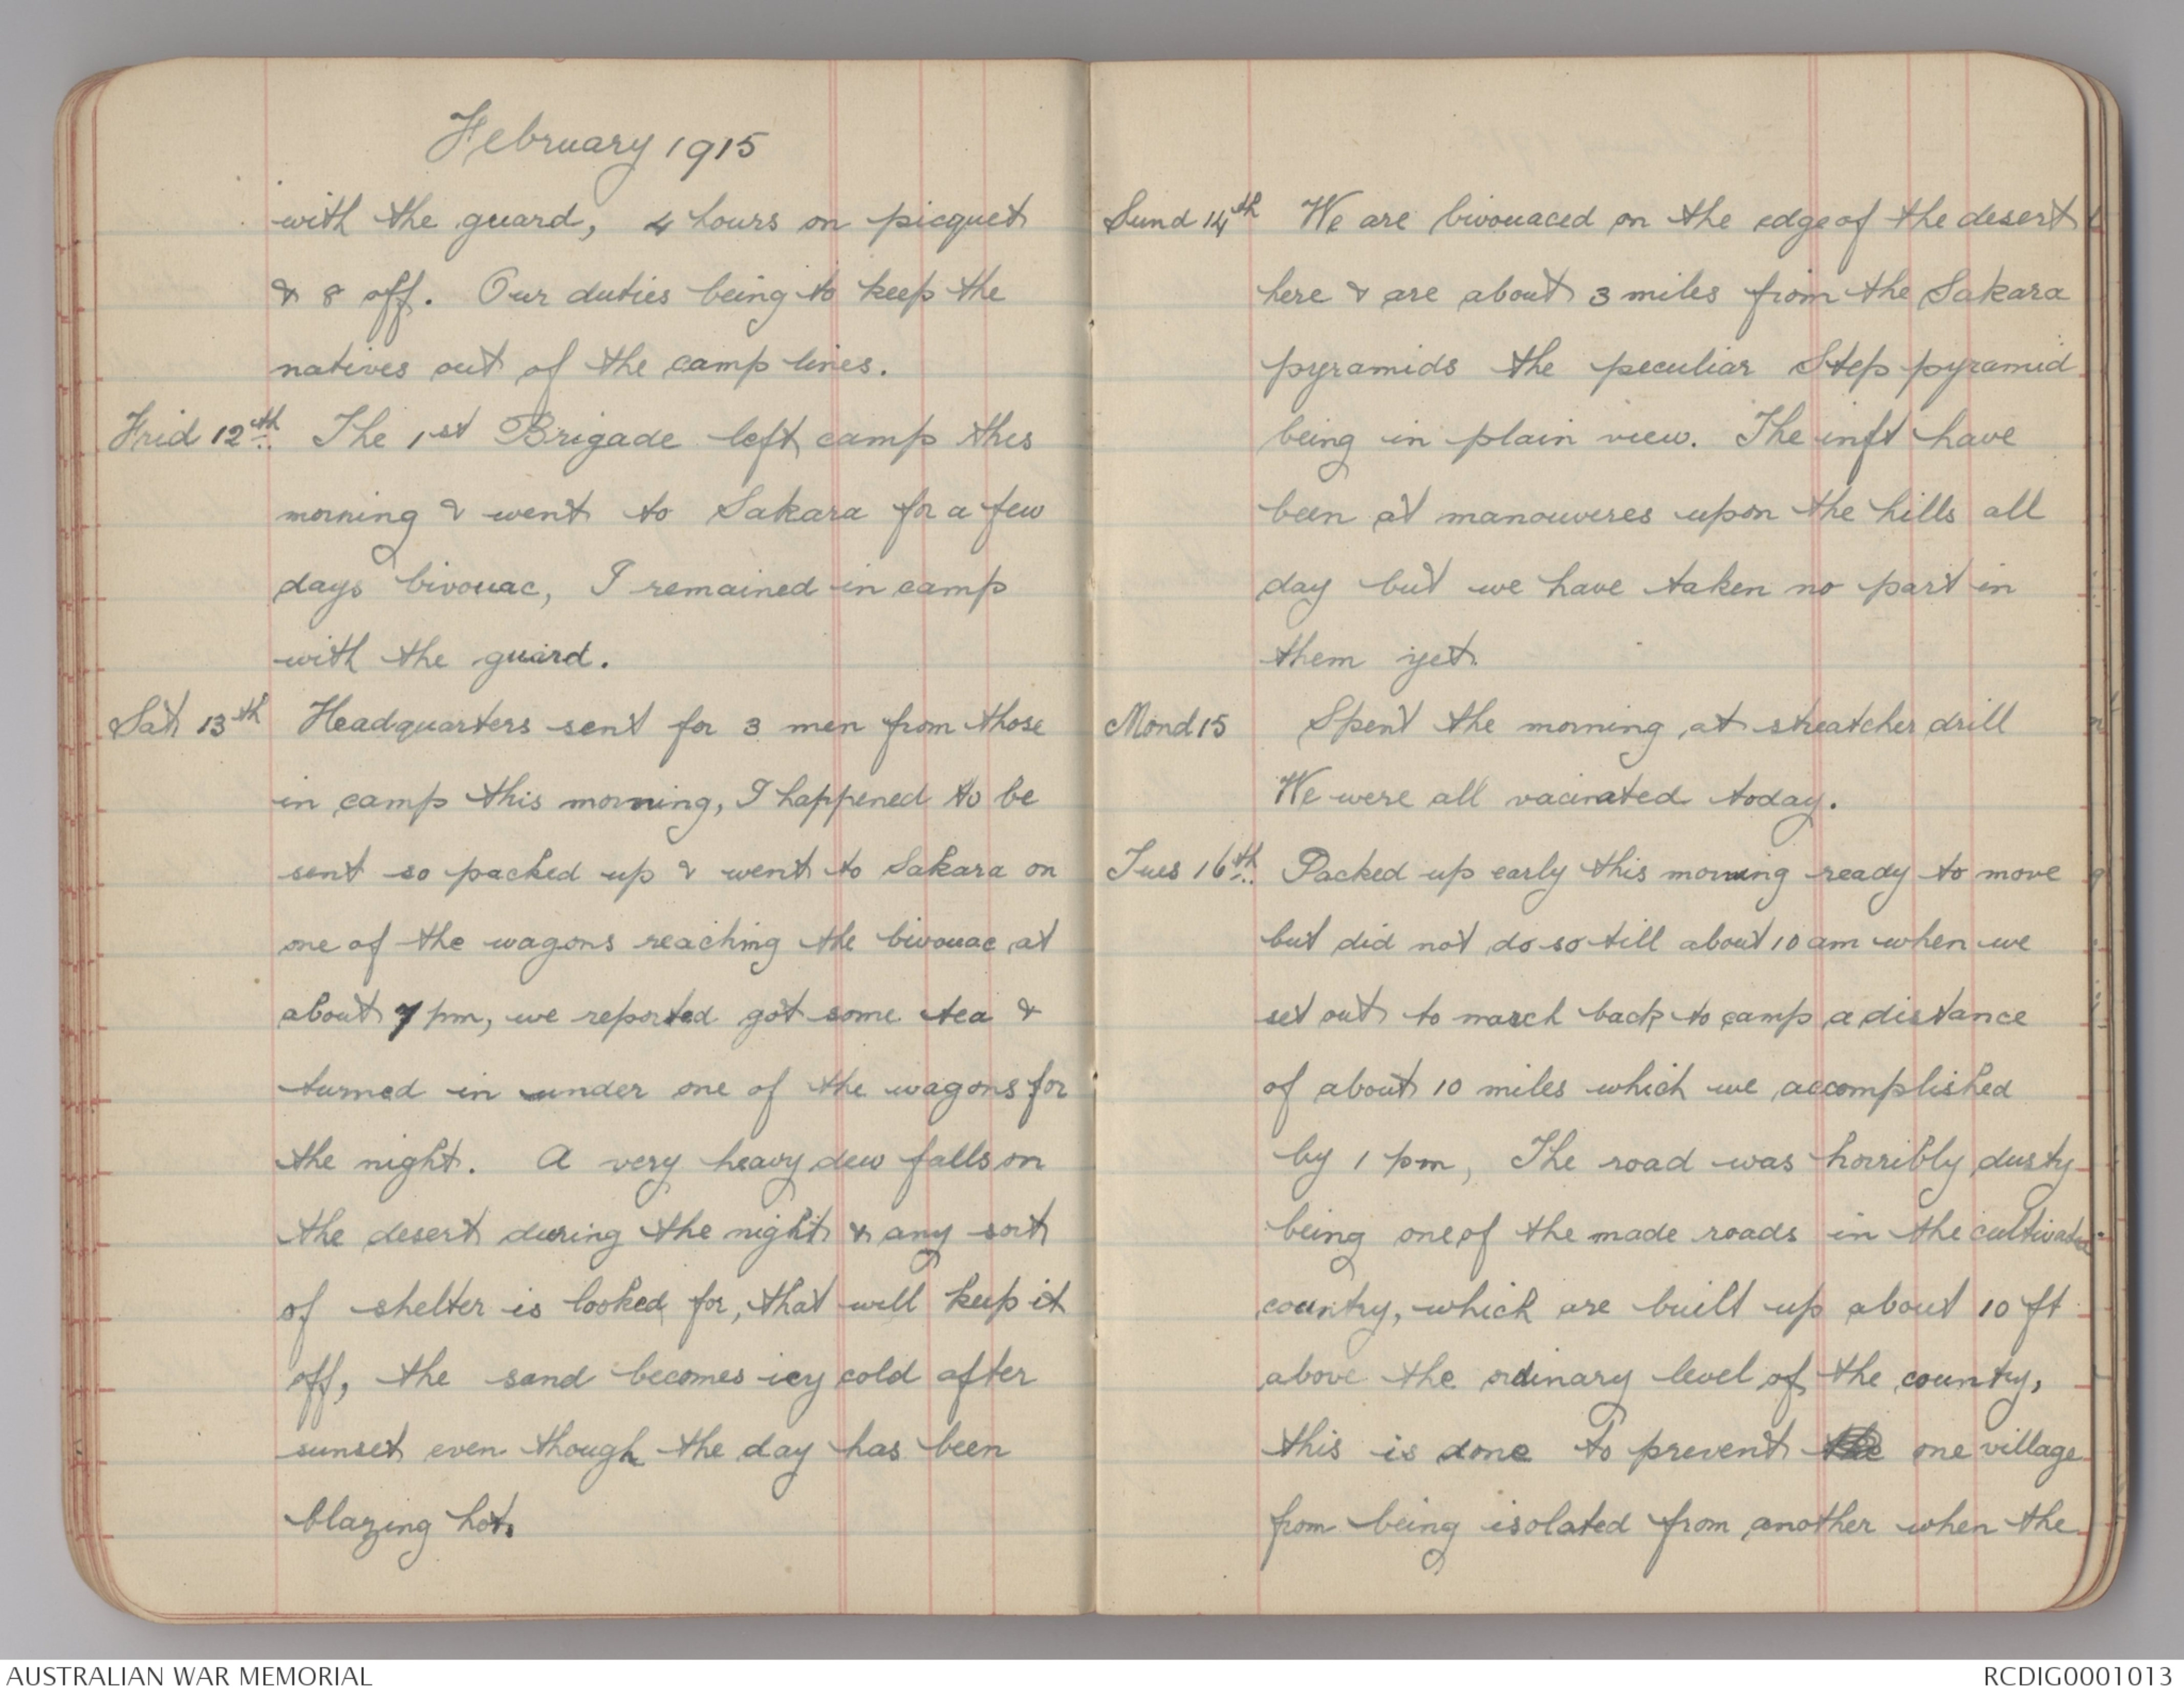 February 1915
with the guard, 4 hours on picquet
& 8 off. Our duties being to keep the
natives out of the camp lines.
Frid 12th. The 1st Brigade left camp this
morning & went to Sakara for a few
days bivouac, I remained in camp
with the guard.
Sat 13th Headquarters sent for 3 men from those
in camp this morning, I happened to be
sent so packed up & went to Sakara on
one of the wagons reaching the bivouac at
about 7 pm, we reported got some tea &
turned in under one of the wagons for
the night. A very heavy dew falls on
the desert during the night & any sort
of shelter is looked for, that will keep it
off, the sand becomes icy cold after
sunset even though the day has been
blazing hot.
Sund 14th We are bivouaced on the edge of the desert
here & are about 3 miles from the Sakara
pyramids the peculiar Step pyramid
being in plain view. The inft have
been at manouveres upon the hills all
day but we have taken no part in
them yet.
Mond 15 Spent the morning at streatcher drill
We were all vacinated today.
Tues 16th. Packed up early this morning ready to move
but did not do so till about 10 am when we
set out to march back to camp a distance
of about 10 miles which we accomplished
by 1 pm, The road was horribly dusty
being one of the made roads in the cultivated
country, which are built up about 10 ft
above the ordinary level of the country,
this is done to prevent the one village
from being isolated from another when the
AUSTRALIAN WAR MEMORIAL
RCDIG0001013